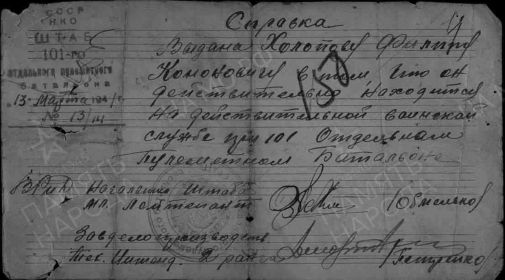 СССР
НКО
ШТАБ
101-го
отдельного пулеметного
батальона
13 Марта 194
№ 13/14
Справка
Выдана Холопову Филиппу
Кононовичу в том, что он
действительно находится
на действительной воинской
службе при 101 Отдельном
Пулеметном Батальоне
150
ВРИД Начальника Штаба
мл. лейтенант
Завделопроизводств.
Тех. Интенд. 2 ранга